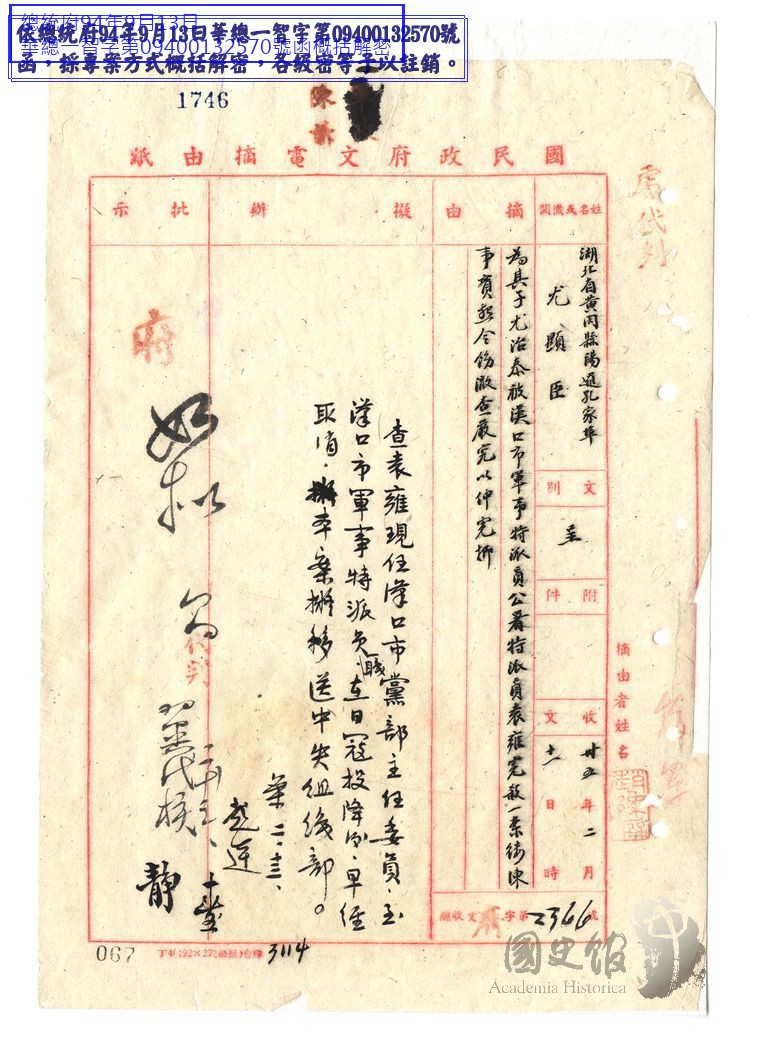 總統府94年9月13日
華總一智字第09400132570號函概括解密
依總統府94年9月13日華總一智字第09400132570號
函，採專案方式概括解密，各級密等予以註銷。
1746
國民政府文電摘由紙
姓名或機關
摘由
擬辦
批示
湖北省黃岡縣陽邏孔家埠
尤顯臣
文別
呈
附件
收文
卅五年二月
十一日時
總收文府字第2366號
為其子尤治泰被漢口市軍事特派員公署特派員袁雍冤殺一案續陳
事實懇令飭澈查嚴究以伸冤抑
查袁雍現任漢口市黨部主任委員，至
漢口市軍事特派員職在日寇投降後早經
取消，本案擬移送中央組織部。
二、十三、
如擬
府
代判
代核
靜
處代判
摘由者姓名
067
3114
國史館
Academia Historica